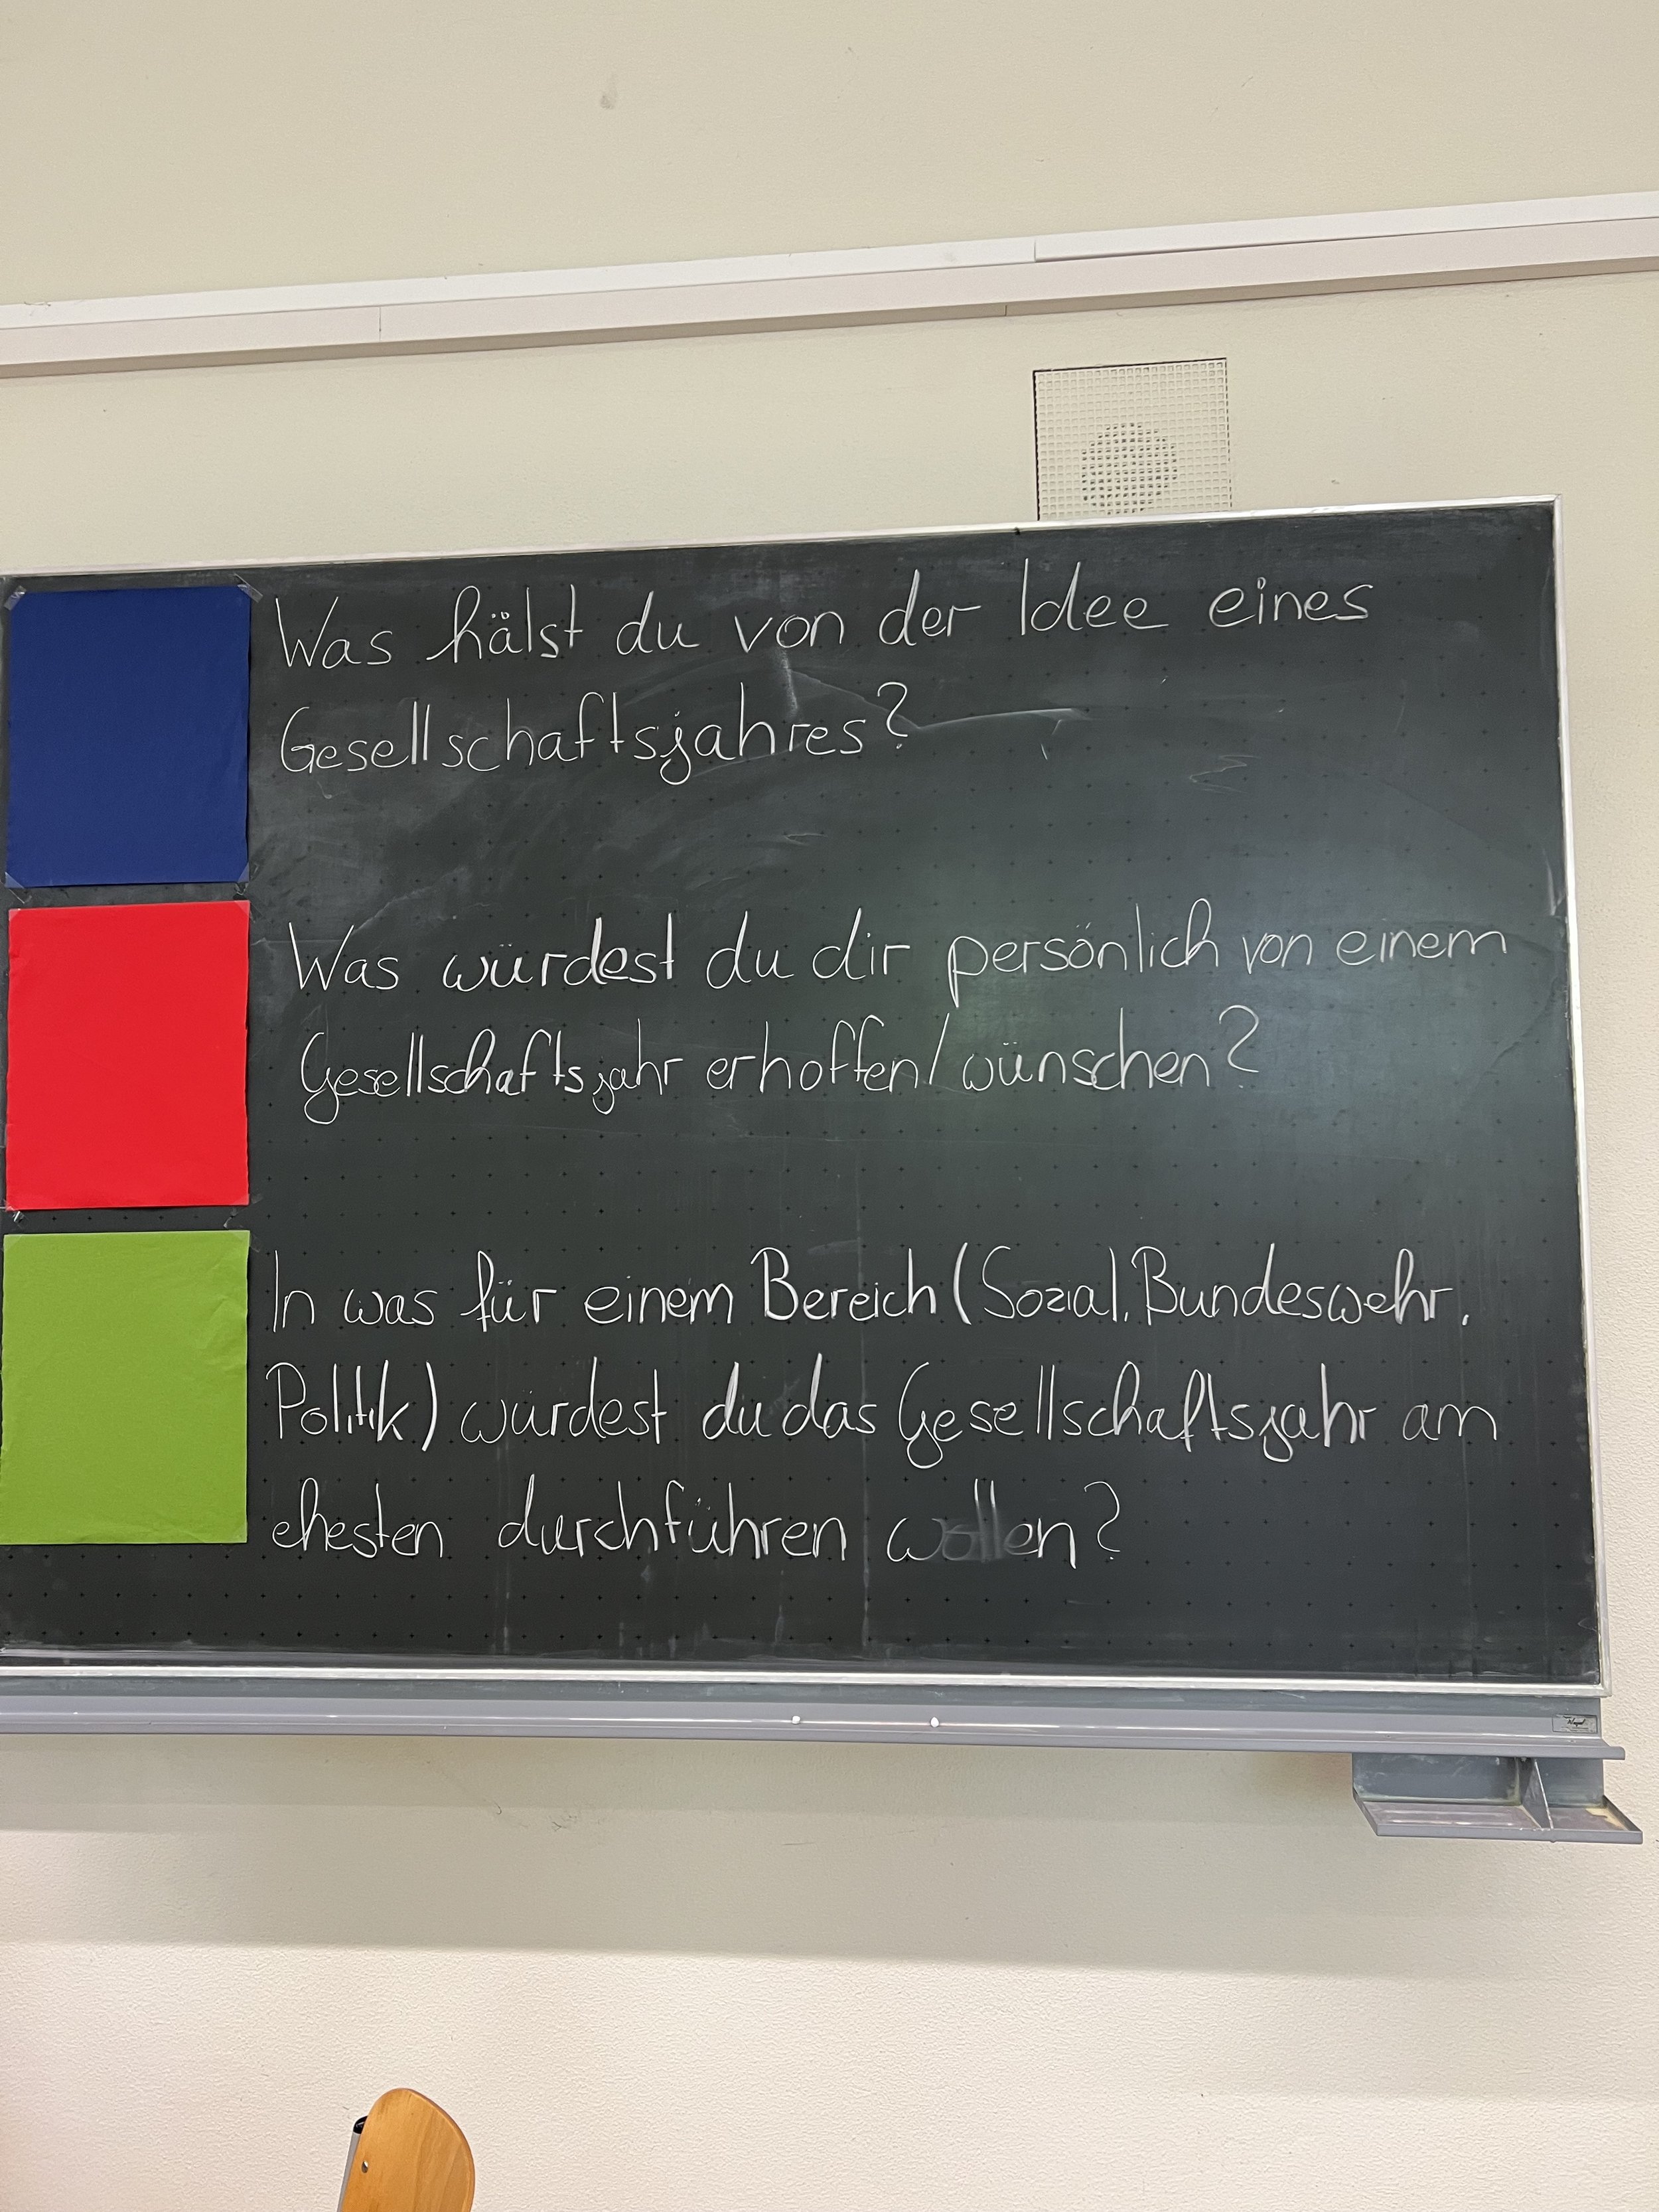 Was hälst du von der Idee eines
Gesellschaftsjahres?
Was würdest du dir persönlich von einem
Gesellschaftsjahr erhoffen/wünschen?
In was für einem Bereich (Sozial, Bundeswehr,
Politik) würdest du das Gesellschaftsjahr am
ehesten durchführen wollen?